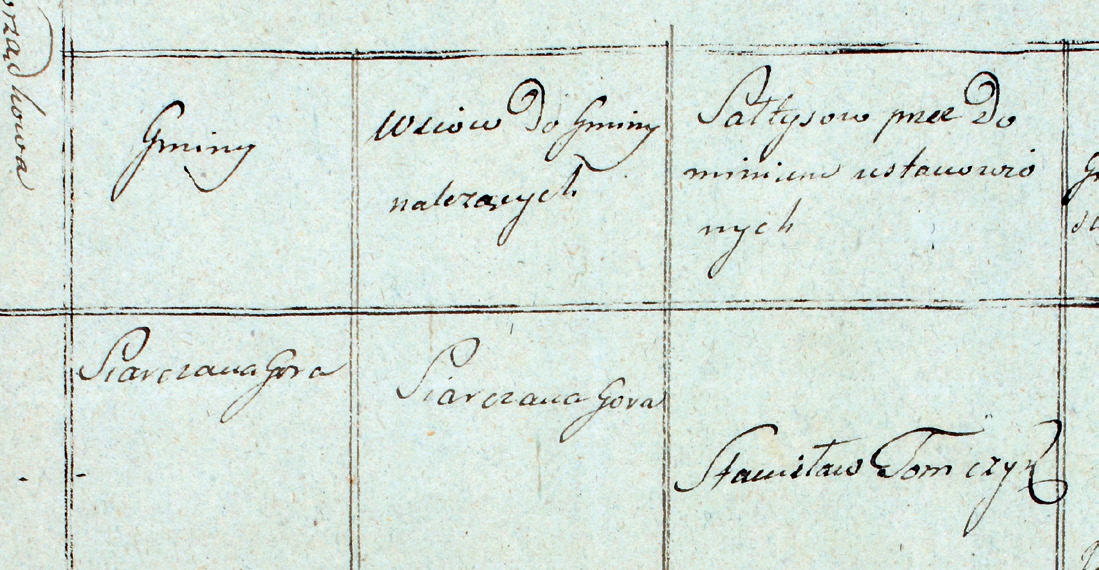 Gminy
wsiow Do Gminy
należących
Sałtysow przez Do
minium ustanowio
nych
Siarczana Gora
Siarczana Gora
Stanisław Tomczyk